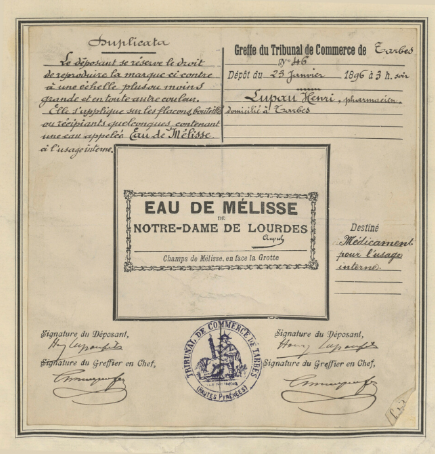 Duplicata
Le déposant se réserve le droit
de reproduire la marque ci contre
à une échelle plus ou moins
grande et en toute autre couleur.
Elle s'applique sur les flacons, bouteilles
ou récipients quelconques, contenant
une eau appelée Eau de Mélisse
à l'usage interne.
Greffe du Tribunal de Commerce de Tarbes
N° 46
Dépôt du 23 Janvier 1896 à 3 h. soir
Lupau Henri, pharmacien,
domicilié à Tarbes
EAU DE MÉLISSE
DE
NOTRE-DAME DE LOURDES
Champs de Mélisse, en face la Grotte
Destiné
Médicament
pour l'usage
interne
Signature du Déposant,
Signature du Greffier en Chef,
TRIBUNAL DE COMMERCE DE TARBES
(HAUTES PYRÉNÉES)
Signature du Déposant,
Signature du Greffier en Chef,